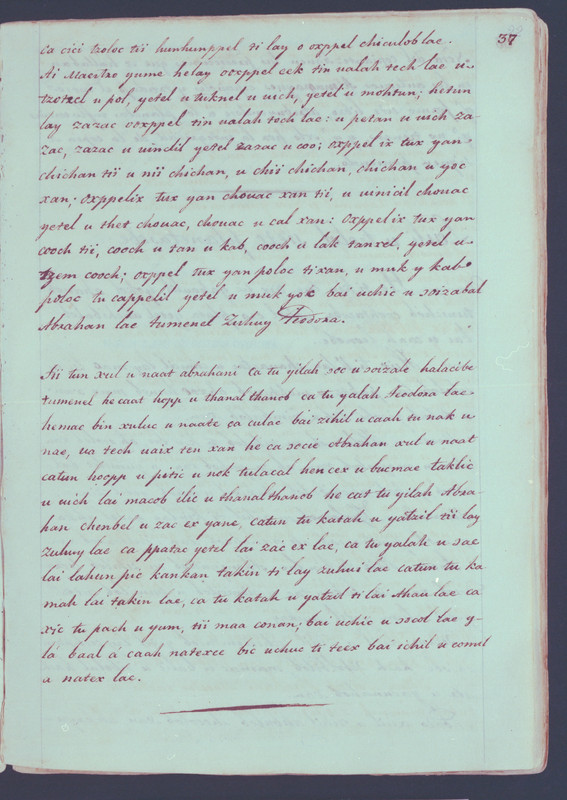 37
ca cici tzoloc tii hunhumppel ti lay o oxppel chiculob lae.
Ai Maestro yume helay ooxppel eek tin ualah tech lae u-
tzotzel u pol, yetel u tuknel u uich, yetel u mohtun; hetun
lay zazac ooxppel tin ualah tech lae: u petan u uich za-
zac, zazac u uindil yetel zazac u coo; oxppel ix tux yan-
chichan tii u nii chichan, u chii chichan, chichan u yoc
xan; oxppelix tux yan chouac xan tii, u uinicil chouac
yetel u thet chouac, chouac u cal xan: oxppel ix tux yan
cooch tii, cooch u tan u kab, cooch u lak tanxel, yetel u-
tzem cooch; oxppel tux yan poloc ti xan, u muk y kab
poloc tu cappelil yetel u muk yok bai uchic u soizabal
Abrahan lae tumenel Zuhuy Teodora.
Tii tun xul u naat abrahani ca tu yilah soc u soizale halacibe
tumenel he caat hopp u thanal thanob ca tu yalah Teodora lae
hemac bin xuluc u naate ca culac bai zihil u caah tu nak u
nae, ua tech uaix ten xan he ca socie Abrahan xul u naat
catun hoopp u pitic u nok tulacal hencex u bucmae taklic
u uich lai macob ilic u thanal thanob he cat tu yilah Abra-
han chenbel u zac ex yane, catun tu katah u yatzil tii lay
zuhuy lae ca ppatac yetel lai zac ex lae, ca tu yalah u sae
lai lahun pic kankan takin ti lay zuhui lae catun tu ka
mah lai takin lae, ca tu katah u yatzil ti lai Ahau lae ca
xic tu pach u yum, tii maa conan; bai uchic u socol lae y-
lá baal á caah natexce bic uchuc ti teex bai ichil u comil
a natex lae.